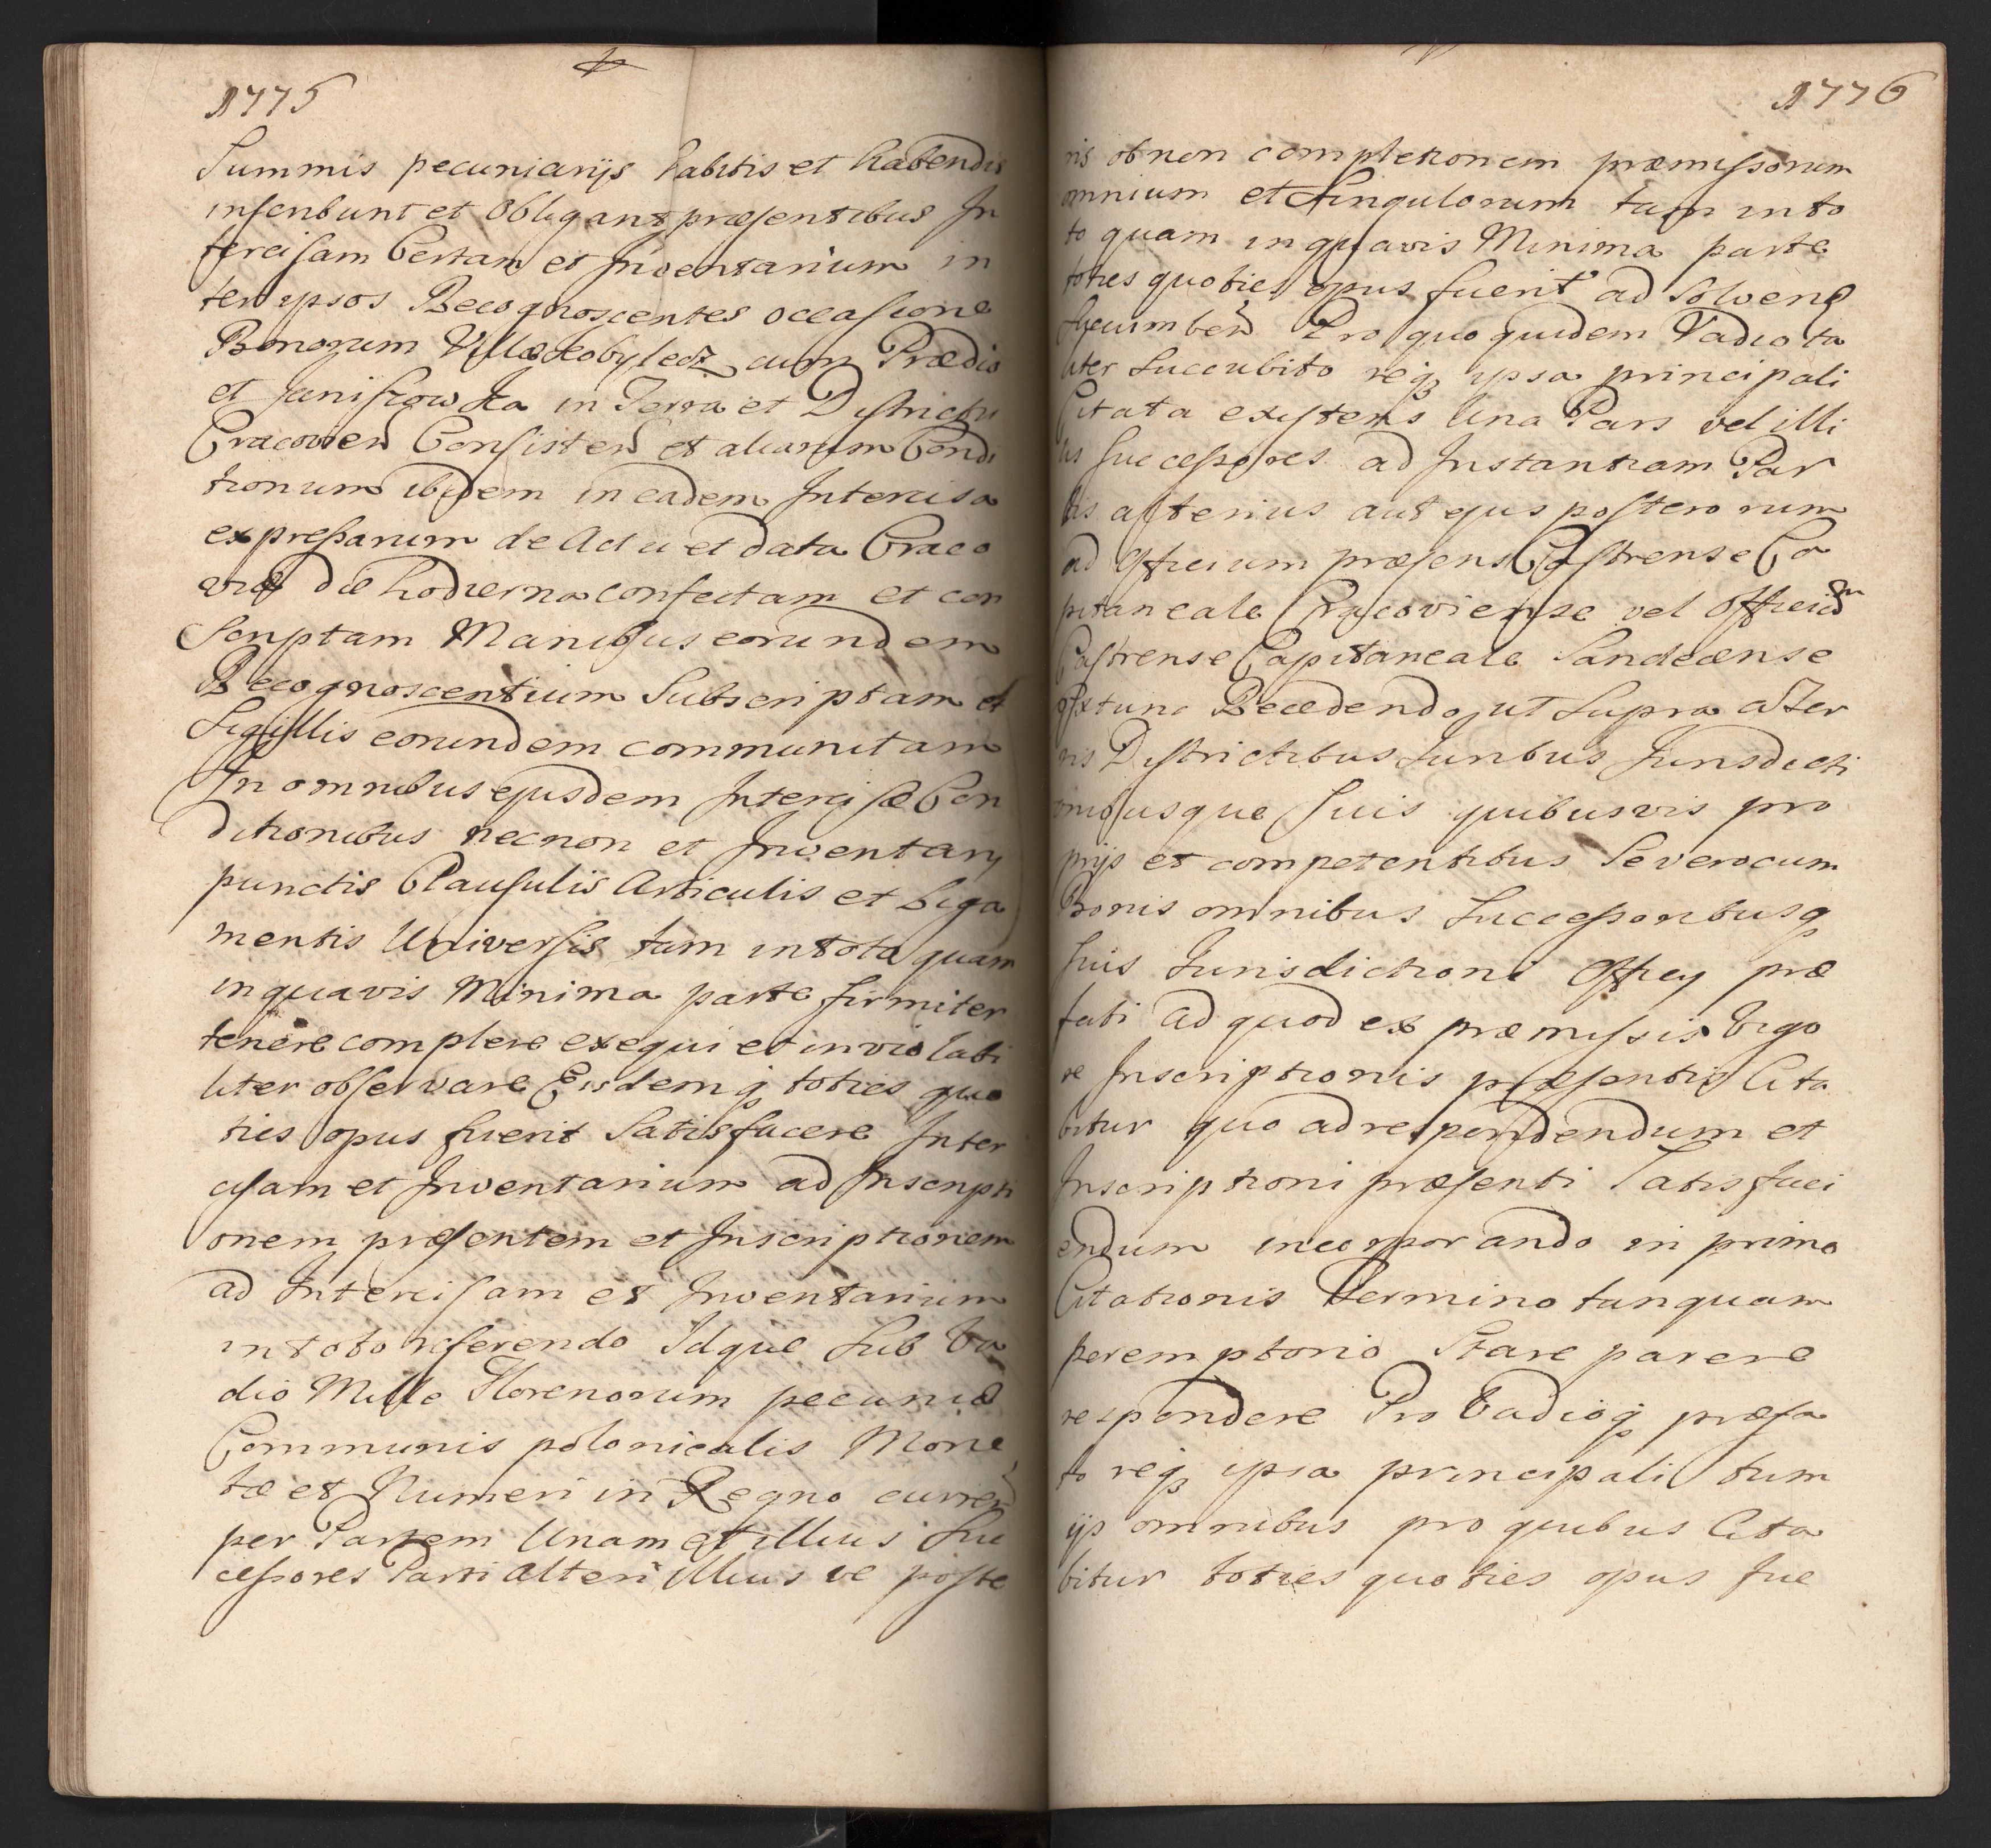 1775
Summis pecuniarijs habitis et habendis
inscribunt et Obligant præsentibus In
tercisam Certam et Inventarium in
ter ipsos Recognoscentes occasione
Bonorum Villæ Kobyłecz cum Prædio
et Janiszowka in Terra et Districtu
Cracovien Consisten et aliarum Condi
tionum ibidem in eadem Intercisa
expressarum de Actu et data Craco
viæ die hodierna confectam et con
scriptam Manibus eorundem
Recognoscentium Subscriptam et
Sigillis eorundem communitam
In omnibus ejusdem Intercisæ Con
ditionibus necnon et Inventarij
punctis Clausulis Articulis et Liga
mentis Universis tam in tota quam
in quavis Minima parte firmiter
tenere complere exequi et inviolabi
liter observare Eisdemq toties quo
ties opus fuerit Satisfacere Inter
cisam et Inventarium ad Inscripti
onem præsentem et Inscriptionem
ad Intercisam et Inventarium
in toto referendo Idque Sub Va
dio Mille Florenorum pecuniæ
Communis polonicalis Mone
tæ et Numeri in Regno curren
per Partem Unam et illius Suc
cessores Parti Alteri illius ve poste
1776
ris ob non completionem præmissorum
omnium et Singulorum tam in to
to quam in quavis Minima parte
toties quoties opus fuerit ad Solvend
Succumben Pro quo quidem Vadio ta
liter Succubito reiq ipsa principali
Citata existens Una Pars vel illi
us Successores ad Instantiam Par
tis alterius aut ejus posterorum
ad Officium præsens Castrense Ca
pitaneale Cracoviense vel Officium
Castrense Capitaneale Sandecense
extunc Recedendo ut Supra a Ter
ris Districtibus Juribus Jurisdicti
onibusque Suis quibusvis pro
prijs et competentibus Severo cum
Bonis omnibus Successoribusq
Suis Jurisdictioni Officij præ
fati ad quod ex præmissis Vigo
re Inscriptionis præsentis Cita
bitur quo ad respondendum et
Inscriptioni præsenti Satisfaci
endum incorporando in primo
Citationis Termino tanquam
peremptorio Stare parere
respondere Pro Vadioq præfa
to reiq ipsa principali tum
ijs omnibus pro quibus Cita
bitur toties quoties opus fue